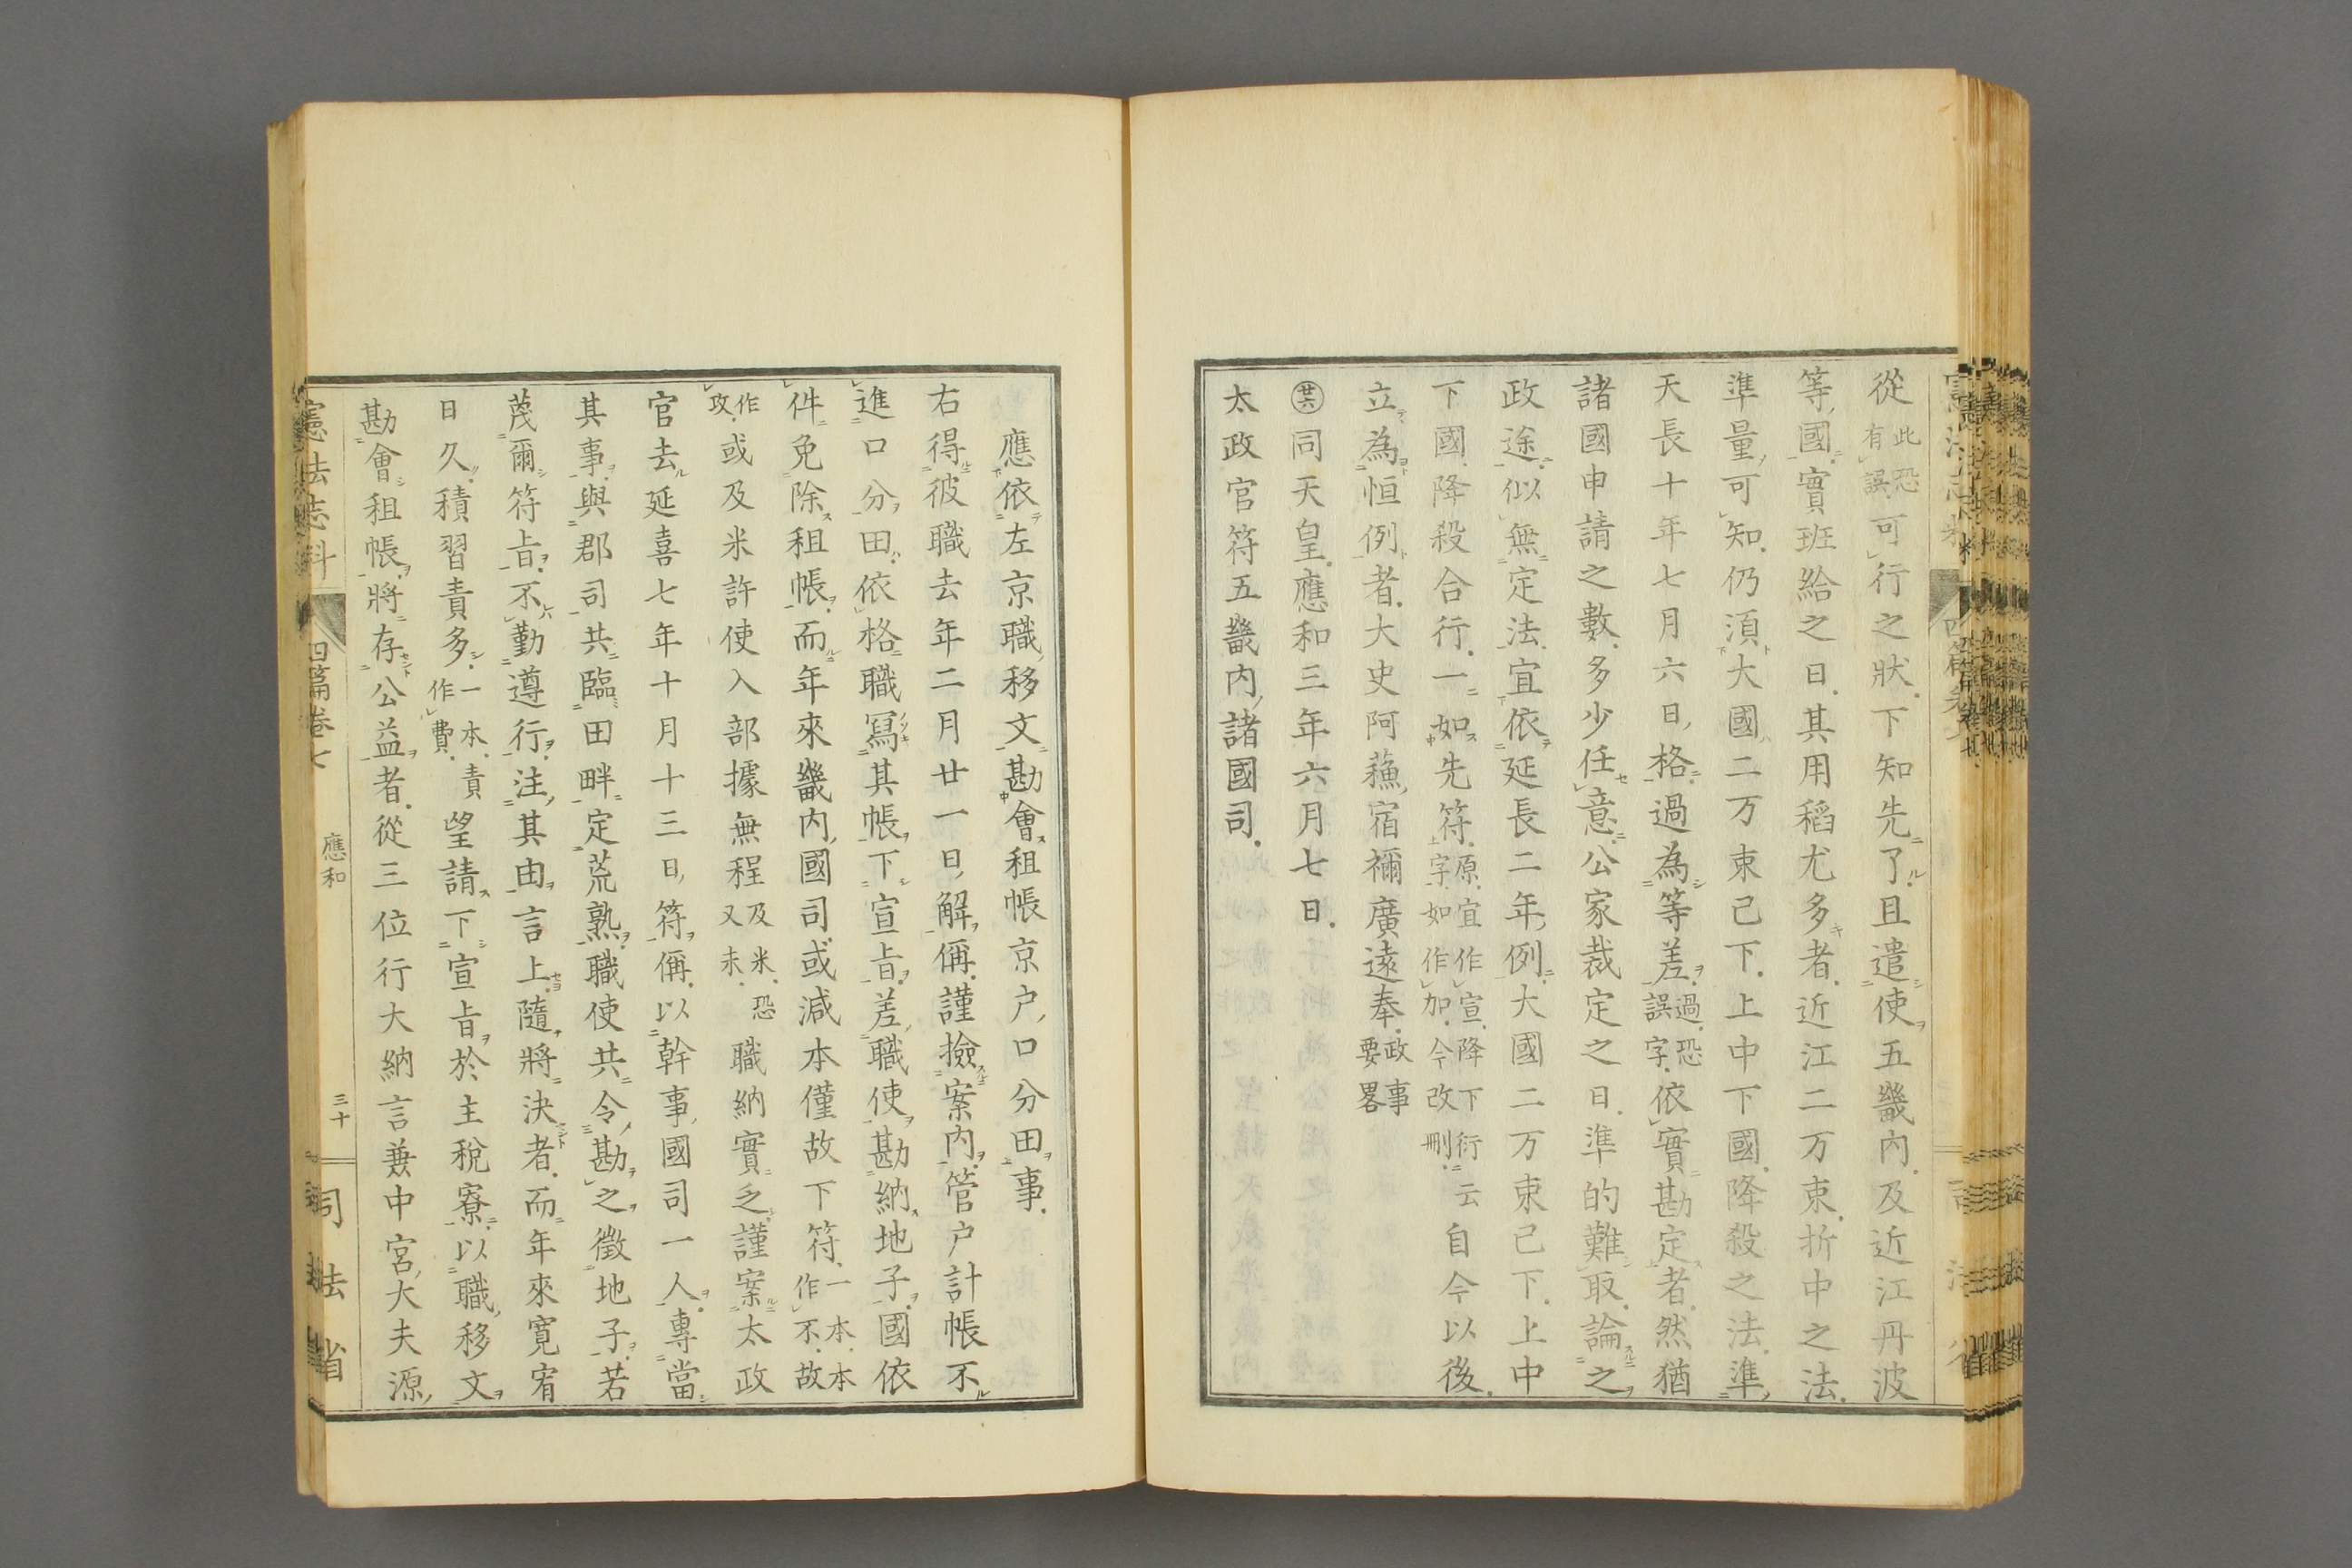 從此恐有誤可行之狀下知先了且遣使五畿内及近江丹波
等國實班給之日其用稻尤多者近江二万束折中之法
準量可知仍湏大國二万束已下上中下國降殺之法準
天長十年七月六日格過為等差過恐誤字依實勘定者然猶
諸國申請之數多少任意公家裁定之日準的難取論之
政途似無定法宜依延長二年例大國二万束已下上中
下國降殺合行一如先符原宜作宣降下衍云字如作加今改刪自今以後
立為恒例者大史阿蘓宿禰廣遠奉政事要畧
廿六同天皇應和三年六月七日
太政官符五畿内諸國司
應依左京職移文勘會租帳京户口分田事
右得彼職去年二月廿一日解偁謹撿案内管户計帳不
進口分田依格職冩其帳下宣旨差職使勘納地子國依
件免除租帳而年來畿内國司或減本僅故下符一本本作不故
作攻或及米許使入部據無程及米恐又未職納實乏謹案太政
官去延喜七年十月十三日符偁以幹事國司一人專當
其事與郡司共臨田畔定荒熟職使共令勘之徵地子若
蔑爾符旨不勤遵行注其由言上隨將決者而年來寛宥
日久積習責多一本責作費望請下宣旨於主税寮以職移文
勘會租帳將存公益者從三位行大納言兼中宮大夫源
憲法志料
四篇卷七
應和
三十
司法省